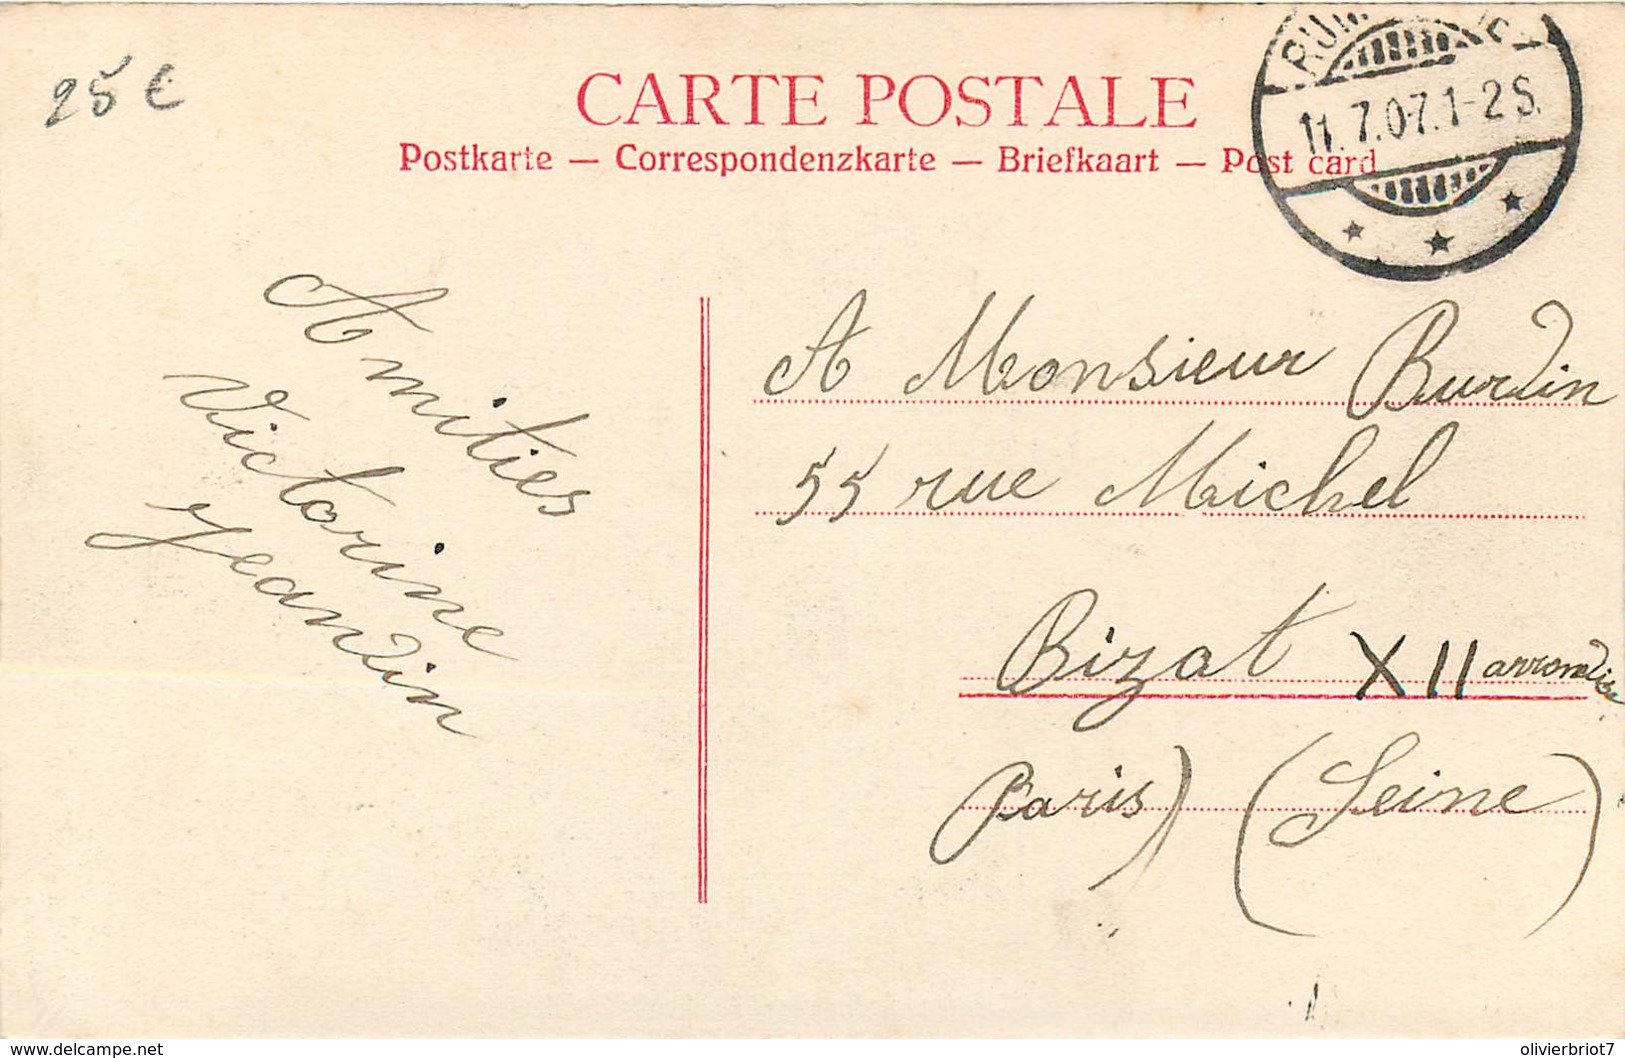 25 €
CARTE POSTALE
Postkarte — Correspondenzkarte — Briefkaart — Post card
11.7.07.1-2S.
Amities
Victorine
Jeandin
A Monsieur Burdin
55 rue Michel
Bizat XII arrondise
Paris) (Seine)
www.delcampe.net
olivierbriot7